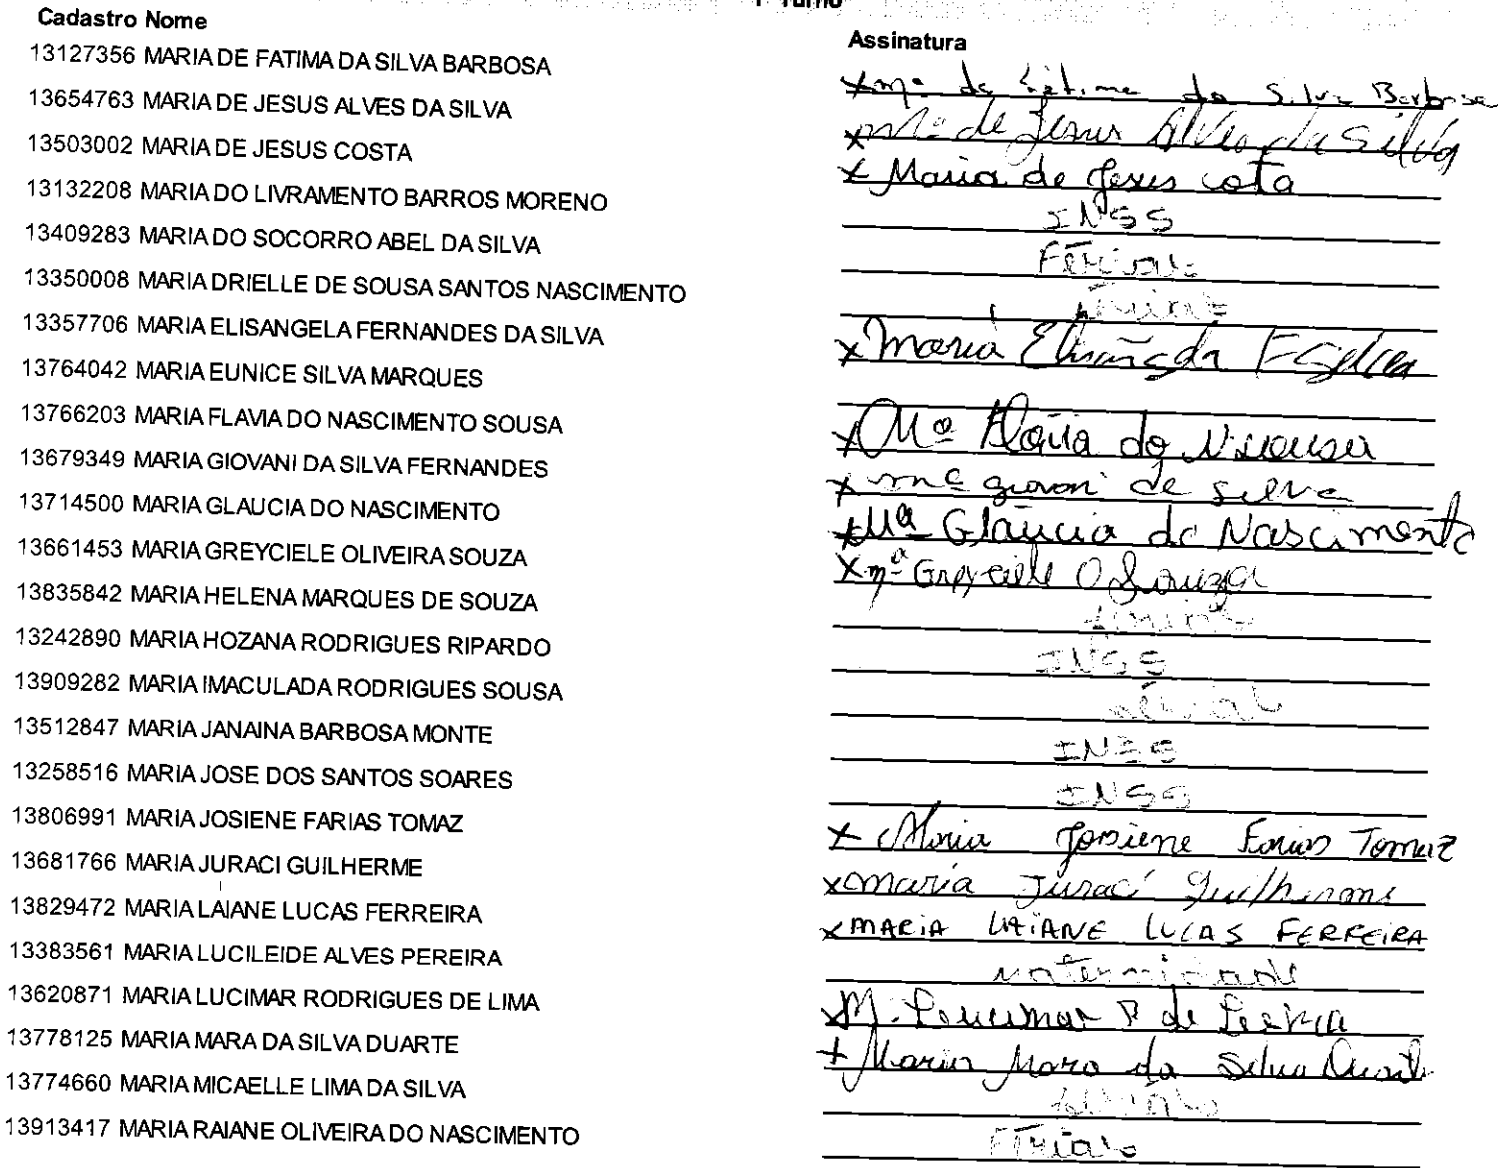 1º Turno
Cadastro Nome
Assinatura
13127356 MARIA DE FATIMA DA SILVA BARBOSA Xmª de Fátima da Silva Barbosa
13654763 MARIA DE JESUS ALVES DA SILVA x Mª de Jesus Alves da Silva
13503002 MARIA DE JESUS COSTA x Maria de Jesus costa
13132208 MARIA DO LIVRAMENTO BARROS MORENO INSS
13409283 MARIA DO SOCORRO ABEL DA SILVA Férias
13350008 MARIA DRIELLE DE SOUSA SANTOS NASCIMENTO
13357706 MARIA ELISANGELA FERNANDES DA SILVA x Maria F Silva
13764042 MARIA EUNICE SILVA MARQUES
13766203 MARIA FLAVIA DO NASCIMENTO SOUSA x Mª Flavia do N Sousa
13679349 MARIA GIOVANI DA SILVA FERNANDES x mª giovani de silva
13714500 MARIA GLAUCIA DO NASCIMENTO x Mª Glaucia do Nascimento
13661453 MARIA GREYCIELE OLIVEIRA SOUZA x mª Greyciele O Souza
13835842 MARIA HELENA MARQUES DE SOUZA
13242890 MARIA HOZANA RODRIGUES RIPARDO INSS
13909282 MARIA IMACULADA RODRIGUES SOUSA
13512847 MARIA JANAINA BARBOSA MONTE INSS
13258516 MARIA JOSE DOS SANTOS SOARES INSS
13806991 MARIA JOSIENE FARIAS TOMAZ x Maria Josiene Farias Tomaz
13681766 MARIA JURACI GUILHERME x maria Juraci Guilherme
13829472 MARIA LAIANE LUCAS FERREIRA x MARIA LAIANE LUCAS FERREIRA
13383561 MARIA LUCILEIDE ALVES PEREIRA maternidade
13620871 MARIA LUCIMAR RODRIGUES DE LIMA x M. Lucimar R de Lima
13778125 MARIA MARA DA SILVA DUARTE + Maria Mara da Silva Duarte
13774660 MARIA MICAELLE LIMA DA SILVA
13913417 MARIA RAIANE OLIVEIRA DO NASCIMENTO Férias